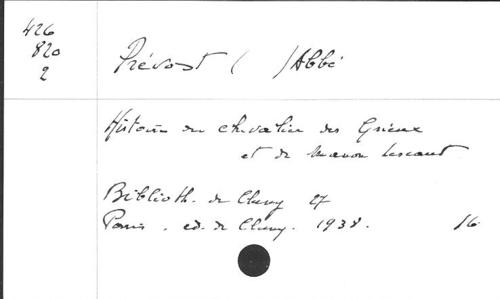 426
820
2
Prévost ( ) Abbé
Histoire du chevalier des Grieux
et de Manon Lescaut
Biblioth. de Cluny 27
Paris. ed. de Cluny. 1938. 16